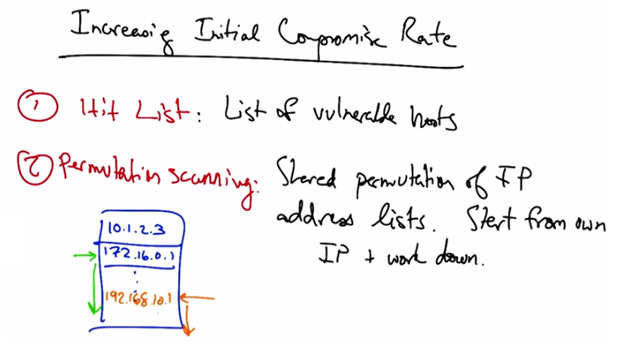 Increasing Initial Compromise Rate
① Hit List: List of vulnerable hosts
② Permutation scanning: Shared permutation of IP
address lists. Start from own
IP + work down.
10.1.2.3
172.16.0.1
192.168.10.1